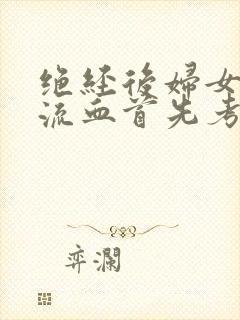 绝经後婦女
流血首先考
弈澜